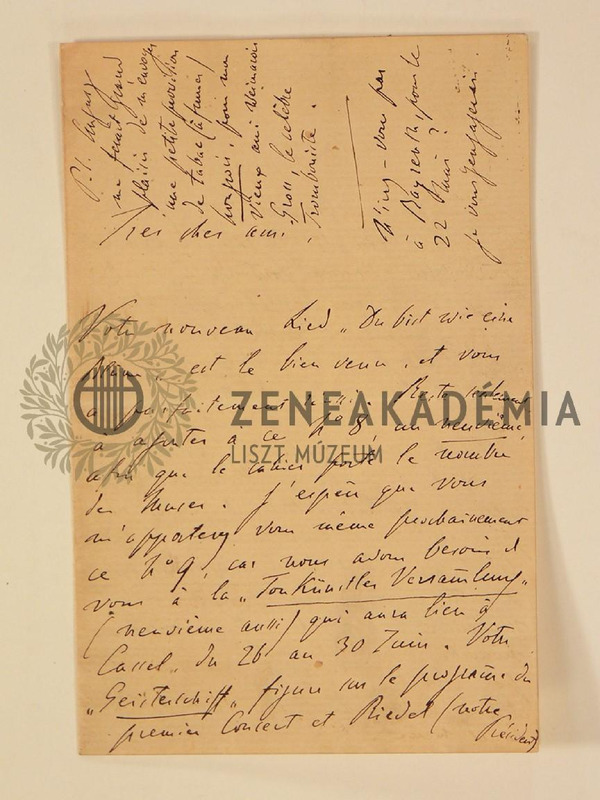 P.S. Ayez
me ferait grand
plaisir de m'envoyer
une petite provision
de tabac (à fumer)
hongrois, pour mon
vieux ami Weimarois
Gross, le célèbre
Tromboniste.
N'irez-vous pas
à Bayreuth, pour le
22 Mai?
je vous y engagerais
Très cher ami,
Votre nouveau Lied „Du bist wie eine
Blume„ est le bien venu, et vous
a parfaitement réussi. Reste seulement
à ajouter à ce N° 8, un neuvième,
afin que le cahier porte le nombre
des Muses. J'espère que vous
m'apporterez vous même prochainement
ce N° 9, car nous avons besoin d
vous à la „Tonkünstler Versamlung„
(neuvième aussi) qui aura lieu à
Cassel, du 26 au 30 Juin. Votre
„Geisterschiff„ figure sur le programe du
premier Concert et Riedel (notre
Président)
ZENEAKADÉMIA
LISZT MÚZEUM